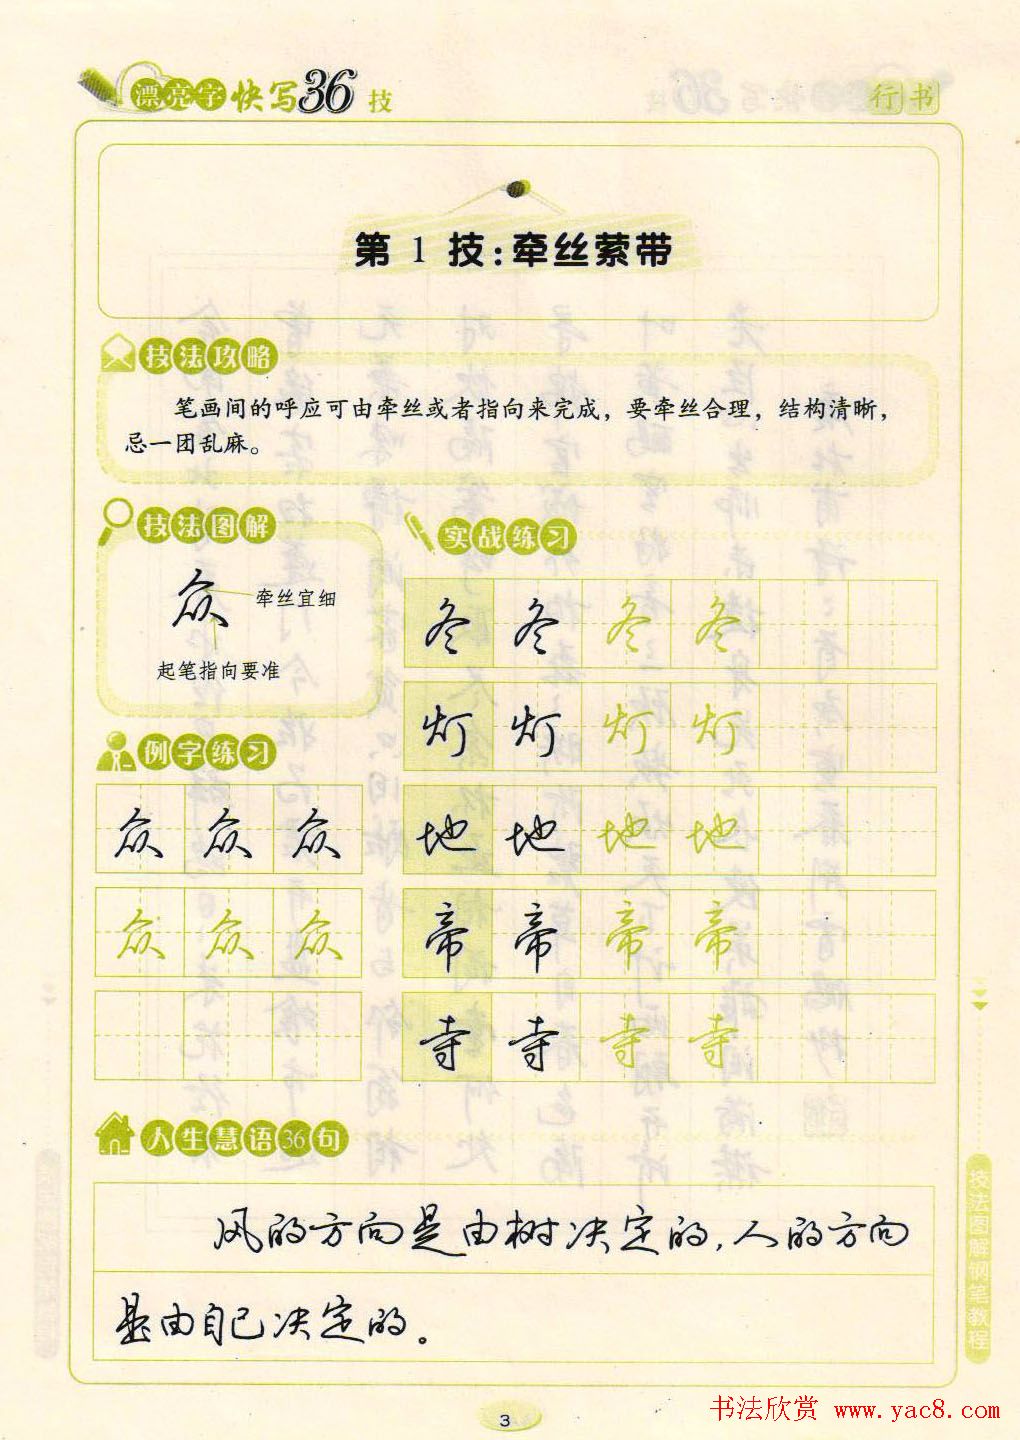 漂亮字快写36技
行书
第1技:牵丝萦带
技法攻略
笔画间的呼应可由牵丝或者指向来完成，要牵丝合理，结构清晰，
忌一团乱麻。
技法图解
众
牵丝宜细
起笔指向要准
例字练习
众 众 众
众 众 众
实战练习
冬 冬 冬 冬
灯 灯 灯 灯
地 地 地 地
帝 帝 帝 帝
寺 寺 寺 寺
人生慧语36句
风的方向是由树决定的,人的方向
是由自己决定的。
技法图解钢笔教程
3
书法欣赏 www.yac8.com